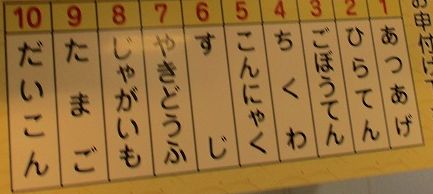 お申付け
1 あつあげ
2 ひらてん
3 ごぼうてん
4 ちくわ
5 こんにゃく
6 すじ
7 やきどうふ
8 じゃがいも
9 たまご
10 だいこん